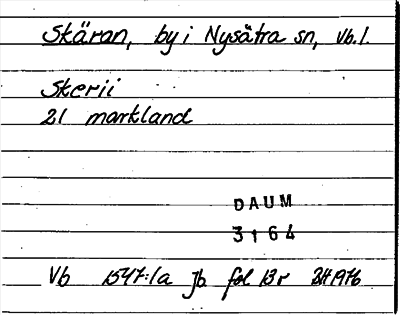 Skäran, by i Nysätra sn, Vb.l.
Skerii
21 markland
DAUM
3164
Vb 1547:1a jb fol 13r BH 1976